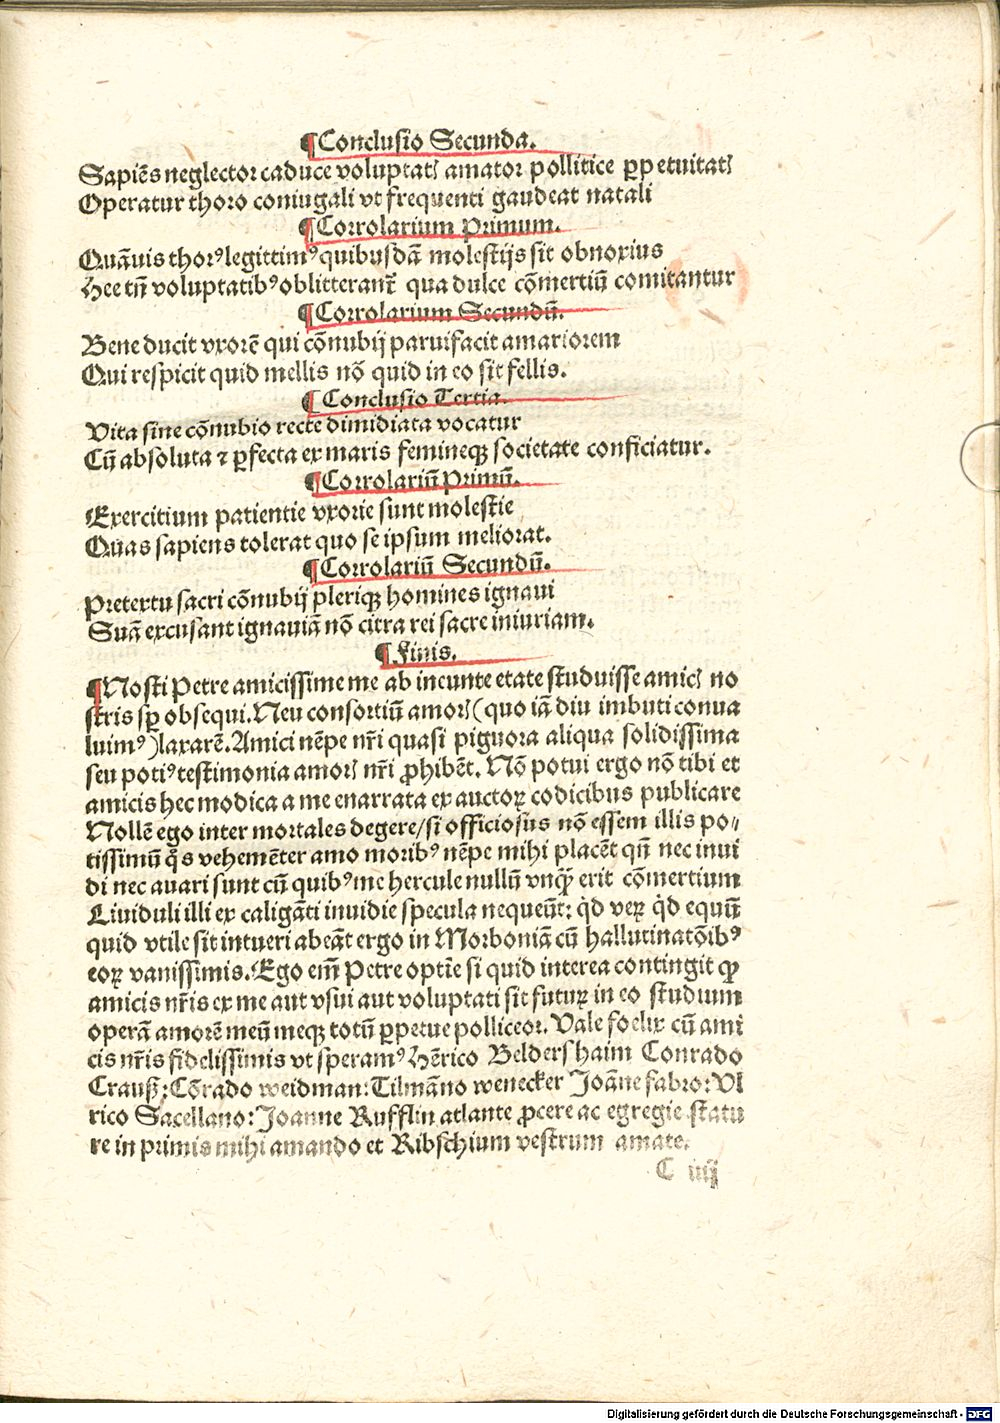 ¶Conclusio Secunda.
Sapiēs neglector caduce voluptatꝭ amator pollitice ꝑpetuitatꝭ
Operatur thoro coniugali vt frequenti gaudeat natali
¶Corrolarium Primum.
Quāuis thorꝰ legittimꝰ quibusdā molestijs sit obnoxius
Hee tn̄ voluptatibꝰ oblitterant᷑ qua dulce cōmertiū comitantur
¶Corrolarium Secundū.
Bene ducit vxorē qui cōnubij paruifacit amariorem
Qui respicit quid mellis nō quid in eo sit fellis.
¶Conclusio Tertia.
Vita sine cōnubio recte dimidiata vocatur
Cū absoluta ⁊ ꝑfecta ex maris femineqꝫ societate conficiatur.
¶Corrolariū Primū.
Exercitium patientie vxorie sunt molestie
Quas sapiens tolerat quo se ipsum meliorat.
¶Corrolariū Secundū.
Pretextu sacri cōnubij pleriqꝫ homines ignaui
Suā excusant ignauiā nō citra rei sacre iniuriam.
¶Finis.
¶Nosti Petre amicissime me ab incunte etate studuisse amicꝭ no
stris sꝑ obsequi. Neu consortiū amorꝭ (quo iā diu imbuti conua
luimꝰ) laxarē. Amici nēpe nr̄i quasi pignora aliqua solidissima
seu potiꝰ testimonia amorꝭ nr̄i ꝓhibēt. Nō potui ergo nō tibi et
amicis hec modica a me enarrata ex auctoꝝ codicibus publicare
Nollē ego inter mortales degere/ si officiosus nō essem illis po⸗
tissimū qͦs vehemēter amo moribꝰ nēpe mihi placēt qn̄ nec inui
di nec auari sunt cū quibꝰ me hercule nullū vnqᷓꝫ erit cōmertium
Liuiduli illi ex caligāti inuidie specula nequeūt: qd̓ veꝝ qd̓ equū
quid vtile sit intueri abeāt ergo in Morboniā cū hallutinatōibꝰ
eoꝝ vanissimis. Ego em̄ Petre optīe si quid interea contingit ꝙ
amicis nr̄is ex me aut vsui aut voluptati sit futuꝝ in eo studium
operā amorē meū meqꝫ totū ꝑpetue polliceor. Vale foelix cū ami
cis nr̄is fidelissimis vt speramꝰ Hērico Beldershaim Conrado
Crauß: Cōrado weidman: Tilmāno wenecker Joāne fabro: Vl
rico Sacellano: Joanne Rufflin atlante ꝓcere ac egregie statu
re in primis mihi amando et Ribschium vestrum amate.
C iiij
Digitalisierung gefördert durch die Deutsche Forschungsgemeinschaft - DFG